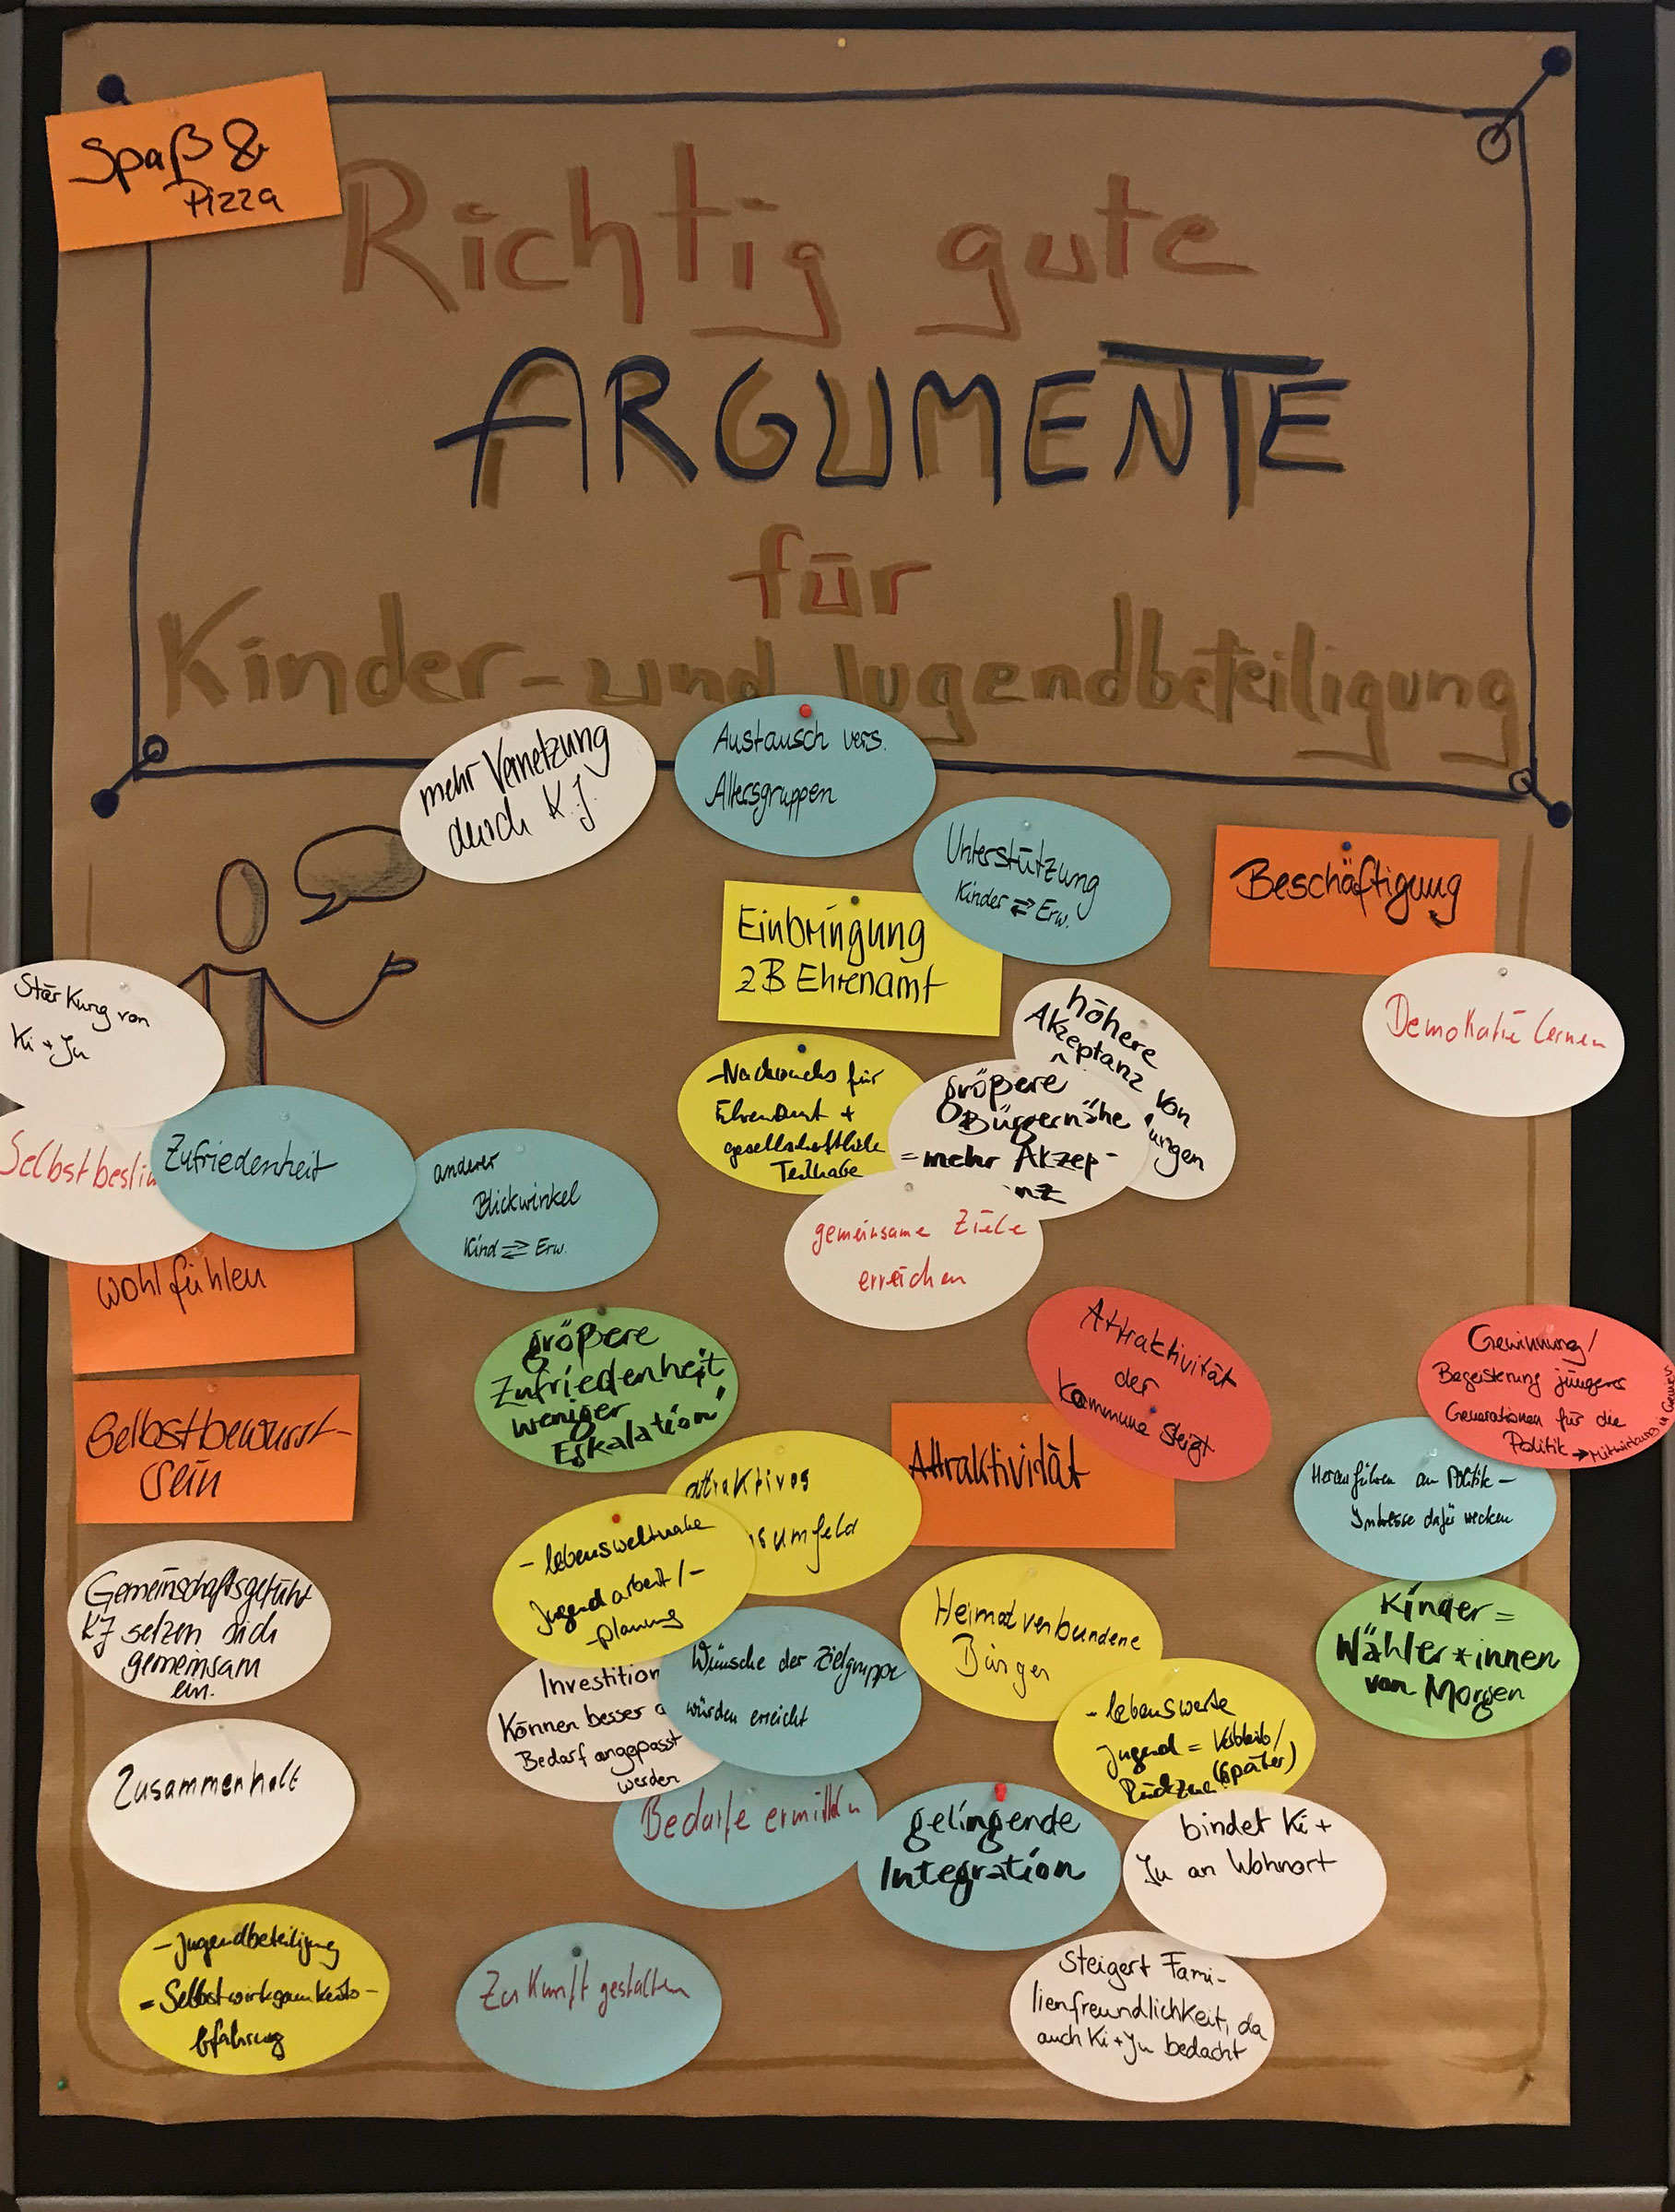 Spaß &
Pizza
Richtig gute
ARGUMENTE
für
Kinder- und Jugendbeteiligung
mehr Vernetzung
durch K.J.
Austausch vers.
Altersgruppen
Unterstützung
Kinder ⇄ Erw.
Einbringung
zB Ehrenamt
Beschäftigung
Demokratie lernen
Stärkung von
Ki + Ju
Zufriedenheit
anderer
Blickwinkel
Kind ⇄ Erw.
wohlfühlen
Selbstbewusst-
sein
- Nachwuchs für
Ehrenamt +
gesellschaftliche
Teilhabe
höhere
Akzeptanz von
größere
Bürgernähe
= mehr Akzep-
gemeinsame Ziele
erreichen
größere
Zufriedenheit,
weniger
Eskalation
Attraktivität
der
Kommune steigt
Attraktivität
Gewinnung/
Begeisterung jüngerer
Generationen für die
Politik →
Heranführen an Politik -
Interesse dafür wecken
Kinder =
Wähler*innen
von Morgen
attraktives
umfeld
- lebensweltnahe
Jugendarbeit/-
-planung
Wünsche der Zielgruppe
würden erreicht
Investition
können besser
Bedarf angepasst
werden
Bedarfe ermitteln
Heimatverbundene
Bürger
- lebenswerte
Jugend = Verbleib/
(später)
gelingende
Integration
bindet Ki +
Ju an Wohnort
steigert Fami-
lienfreundlichkeit, da
auch Ki + Ju bedacht
Gemeinschaftsgefühl
KJ setzen sich
gemeinsam
ein.
Zusammenhalt
- Jugendbeteiligung
= Selbstwirksamkeits-
erfahrung
Zukunft gestalten